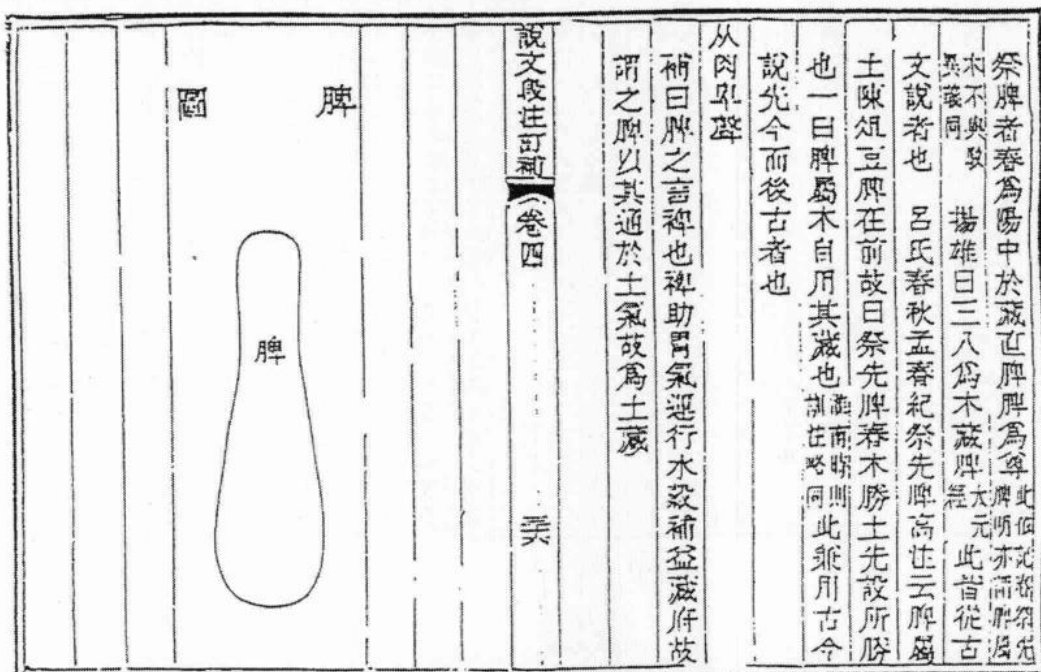 祭脾者春爲陽中於藏直脾脾爲尊此但記春祭先脾明亦謂脾屬
木不與駁異義同　揚雄曰三八爲木藏脾太元經此皆從古
文說者也　呂氏春秋孟春紀祭先脾高注云脾屬
土陳俎豆脾在前故曰祭先脾春木勝土先設所勝
也一曰脾屬木自用其藏也淮南時則訓注略同此兼用古今
說先今而後古者也
从肉卑聲
補曰脾之言裨也裨助胃氣運行水穀補益藏府故
謂之脾以其通於土氣故爲土藏
說文段注訂補　卷四
脾圖
脾